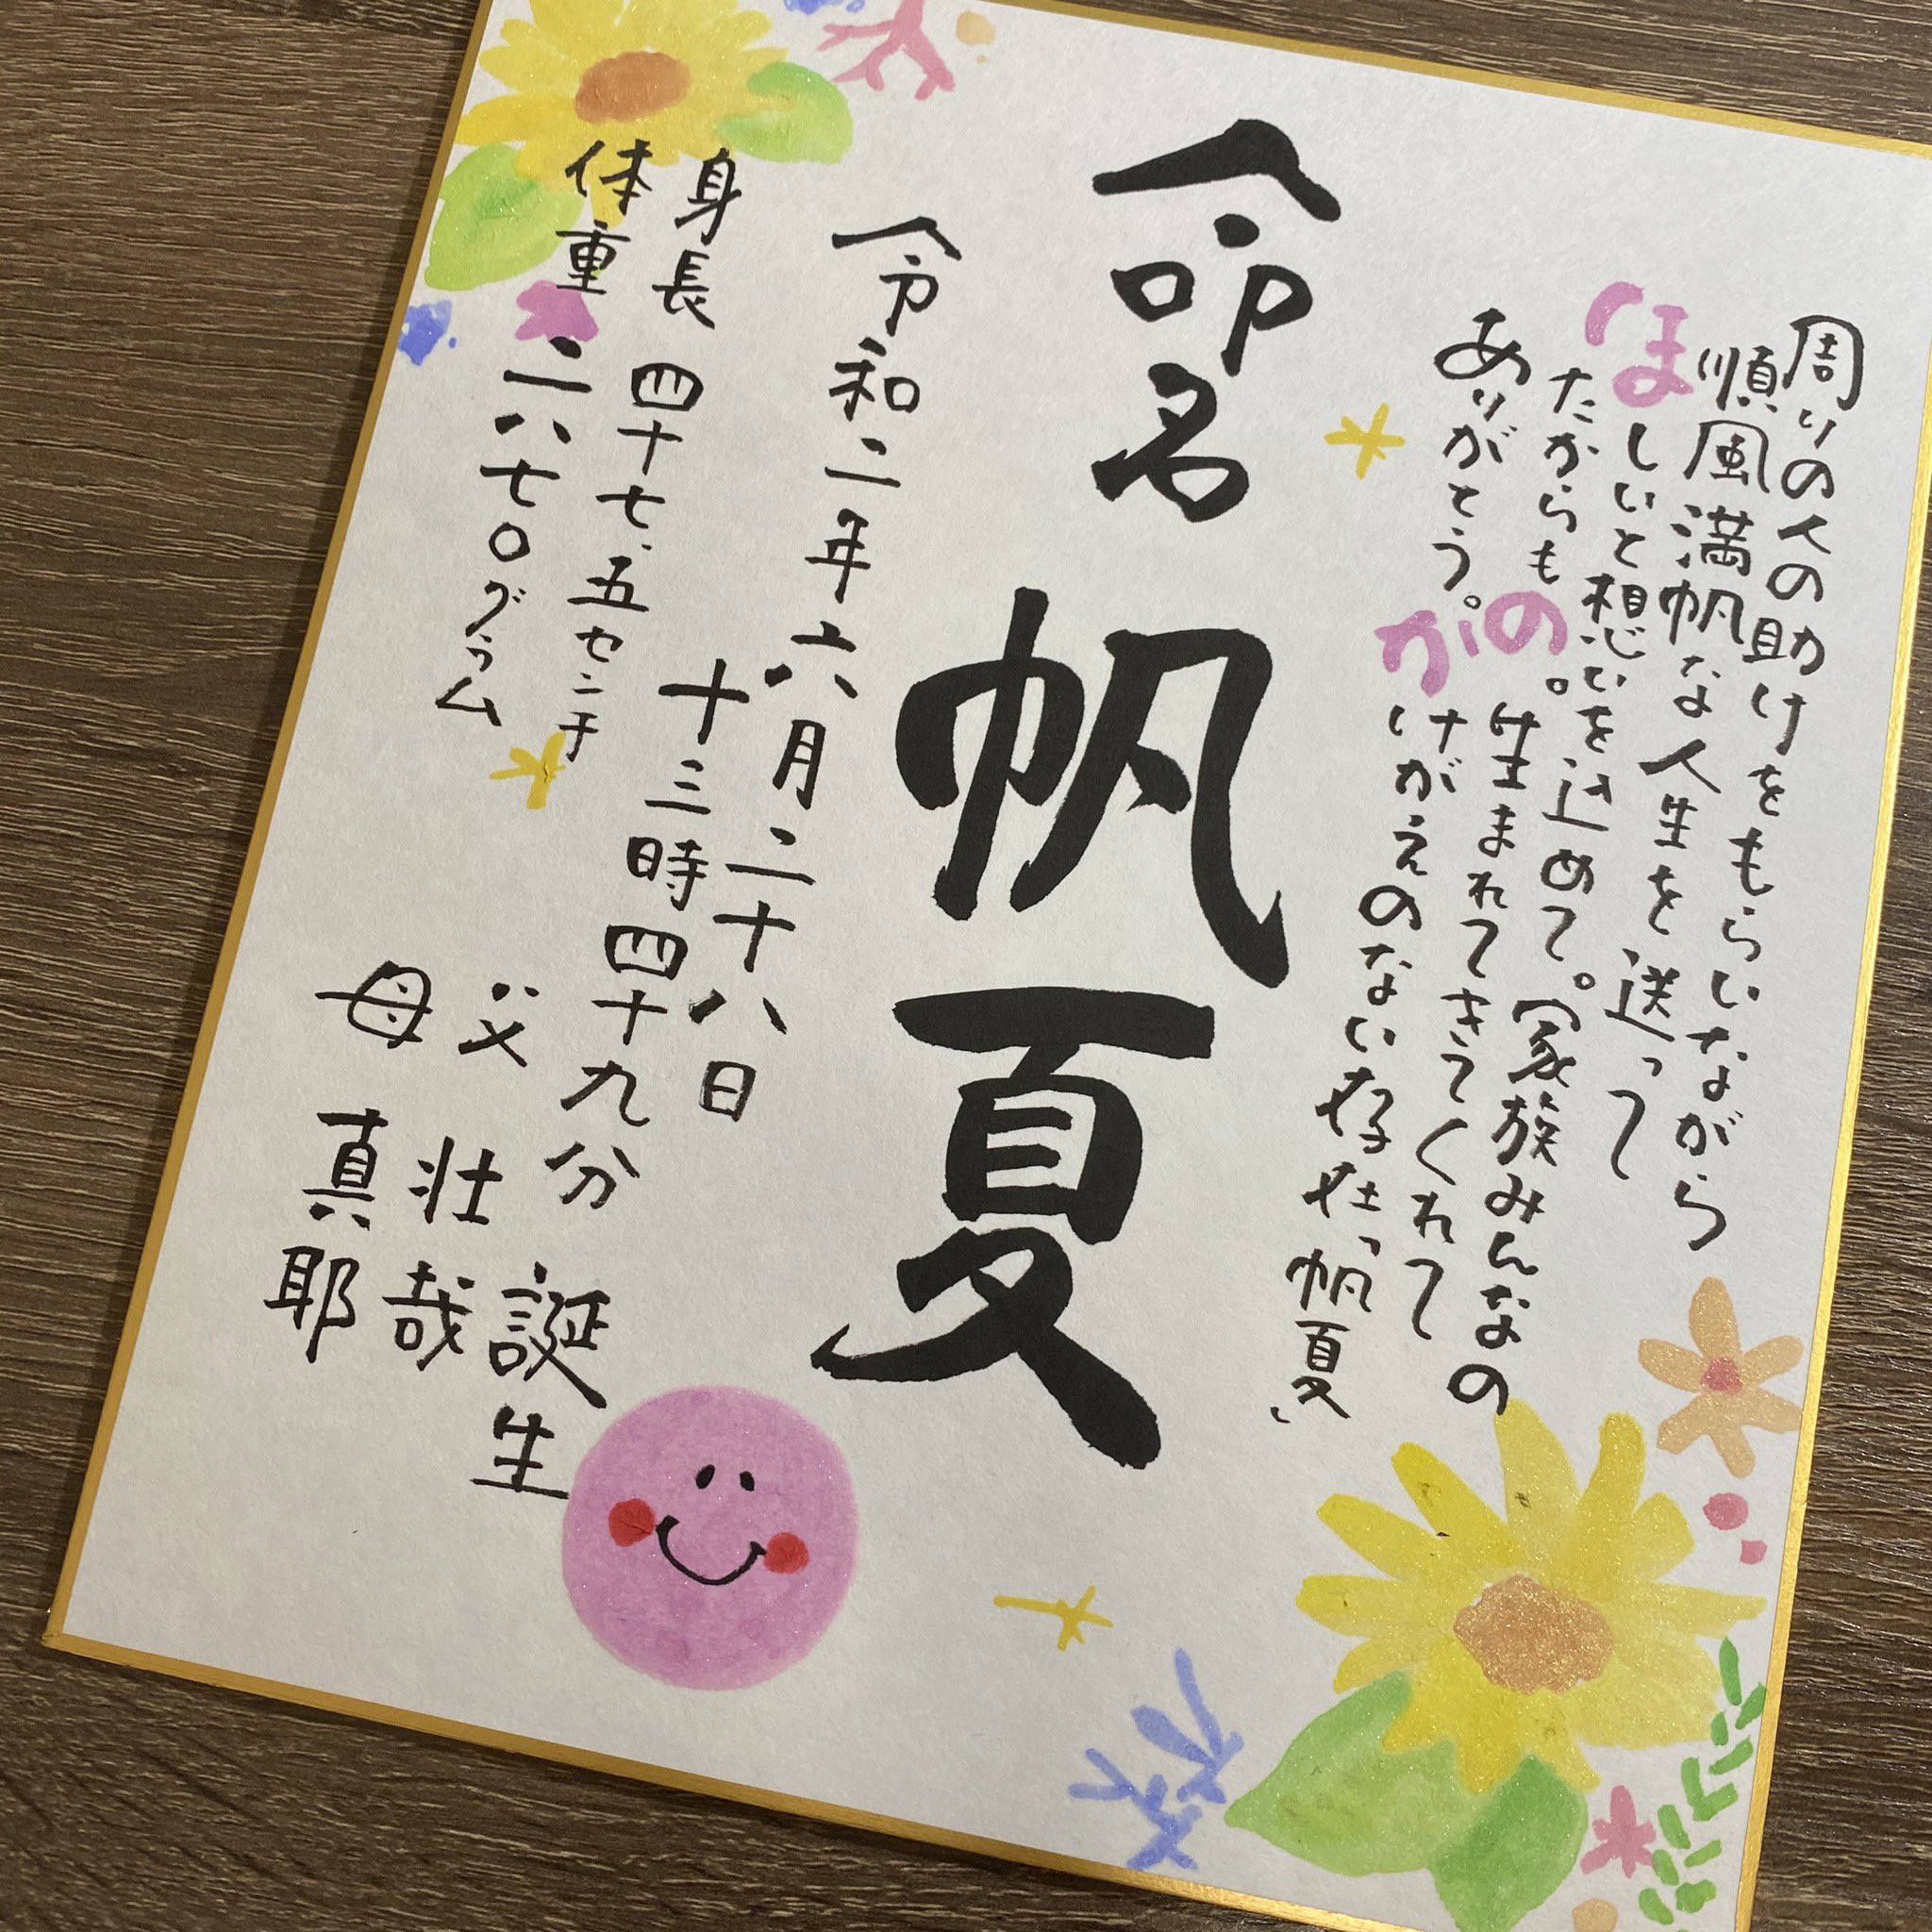 周りの人の助けをもらいながら
順風満帆な人生を送って
ほしいと想いを込めて。家族みんなの
たからもの。生まれてきてくれて
ありがとう。かけがえのない存在っ帆夏、
命名 帆夏
令和二年六月二十八日
十三時四十九分 誕生
身長 四十七.五センチ
体重 二八七〇グラム
父 壮哉
母 真耶